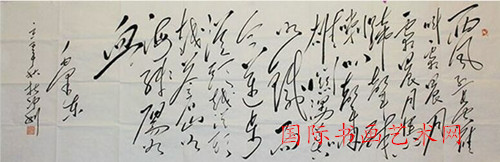 西风烈长空雁
叫霜晨月
霜晨月马
蹄声碎
喇叭声咽
雄关漫道真
如铁而
今迈步
从头越从头
越苍山如
海残阳如
血
毛泽东
国际书画艺术网